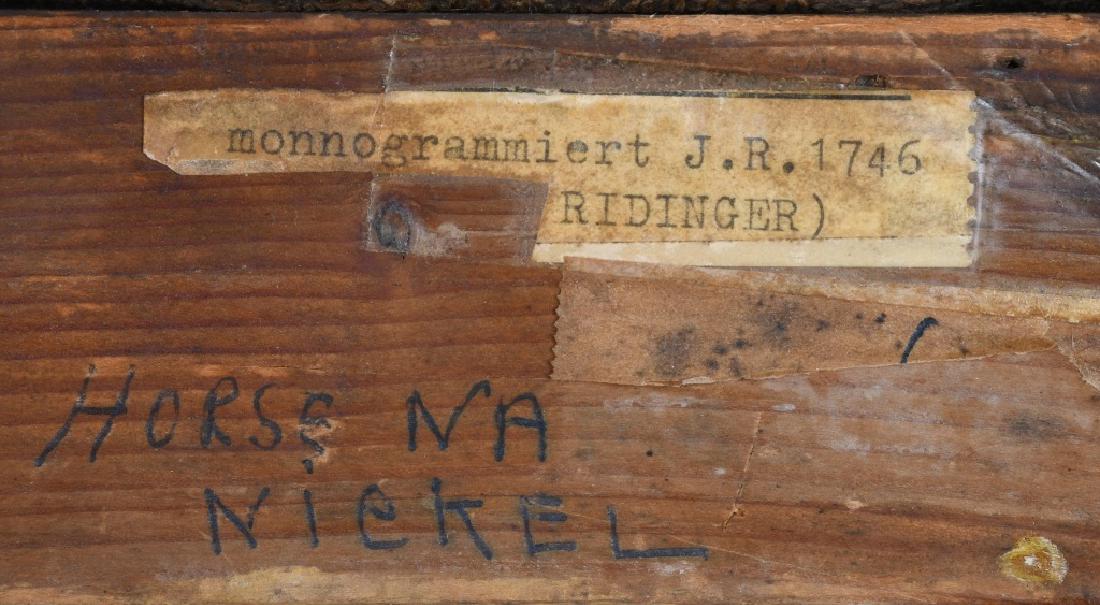 monnogrammiert J.R.1746
RIDINGER)
HORSE NA
NICKEL